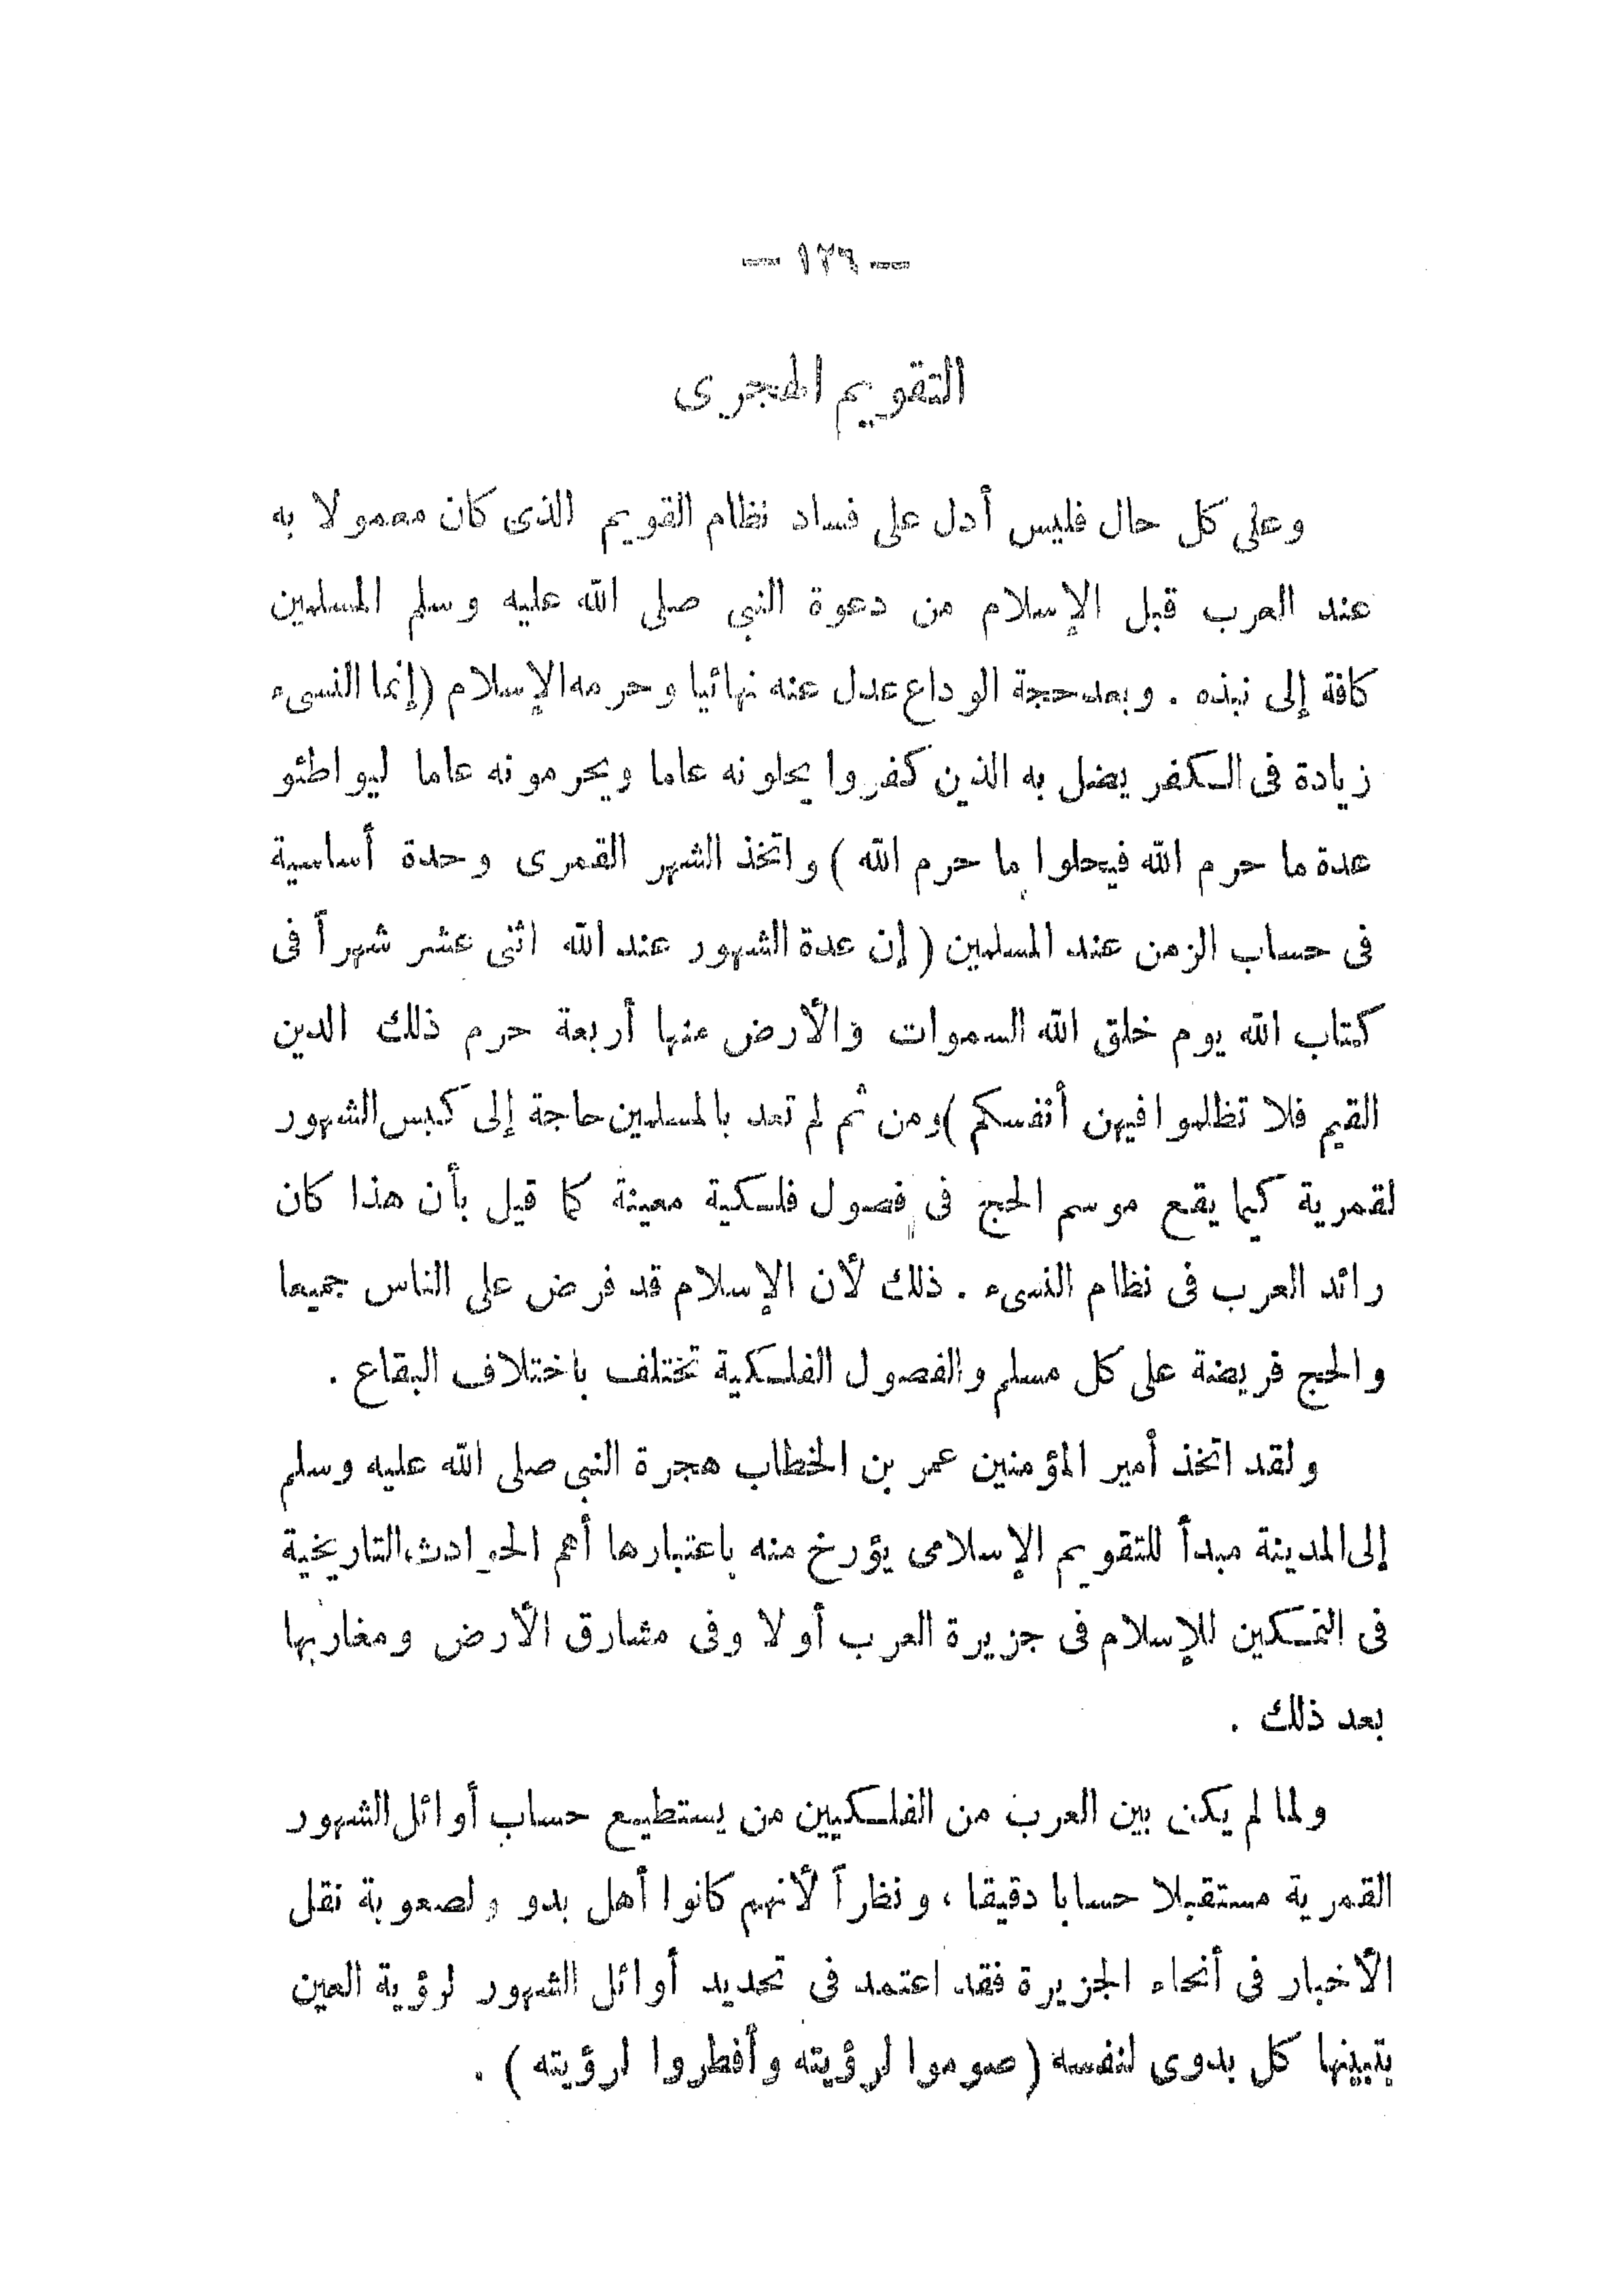 — ١٢٦ —
التقويم الهجرى
وعلى كل حال فليس أدل على فساد نظام القويم الذى كان معمولا به
عند العرب قبل الإسلام من دعوة النبي صلى الله عليه وسلم المسلمين
كافة إلى نبذه . وبعد حجة الوداع عدل عنه نهائيا وحرمه الإسلام (إنما النسىء
زيادة فى الكفر يضل به الذين كفروا يحلونه عاما ويحرمونه عاما ليواطئو
عدة ما حرم الله فيحلوا ما حرم الله ) واتخذ الشهر القمرى وحدة أساسية
فى حساب الزمن عند المسلمين ( إن عدة الشهور عند الله اثنى عشر شهراً فى
كتاب الله يوم خلق الله السموات والأرض منها أربعة حرم ذلك الدين
القيم فلا تظلموا فيهن أنفسكم )ومن ثم لم تعد بالمسلمين حاجة إلى كبس الشهور
لقمرية كيما يقع موسم الحج فى فصول فلكية معينة كما قيل بأن هذا كان
رائد العرب فى نظام النسىء . ذلك لأن الإسلام قد فرض على الناس جميعا
والحج فريضة على كل مسلم والفصول الفلكية تختلف باختلاف البقاع .
ولقد اتخذ أمير المؤمنين عمر بن الخطاب هجرة النبي صلى الله عليه وسلم
إلى المدينة مبدأ للتقويم الإسلامى يؤرخ منه باعتبارها أهم الحوادث التاريخية
فى التمكين للإسلام فى جزيرة العرب أولا وفى مشارق الأرض ومغاربها
بعد ذلك .
ولما لم يكن بين العرب من الفلكيين من يستطيع حساب أوائل الشهور
القمرية مستقبلا حسابا دقيقا ، ونظراً لأنهم كانوا أهل بدو ولصعوبة نقل
الأخبار فى أنحاء الجزيرة فقد اعتمد فى تحديد أوائل الشهور لرؤية العين
يتبينها كل بدوى لنفسه ( صوموا لرؤيته وأفطروا لرؤيته ) .